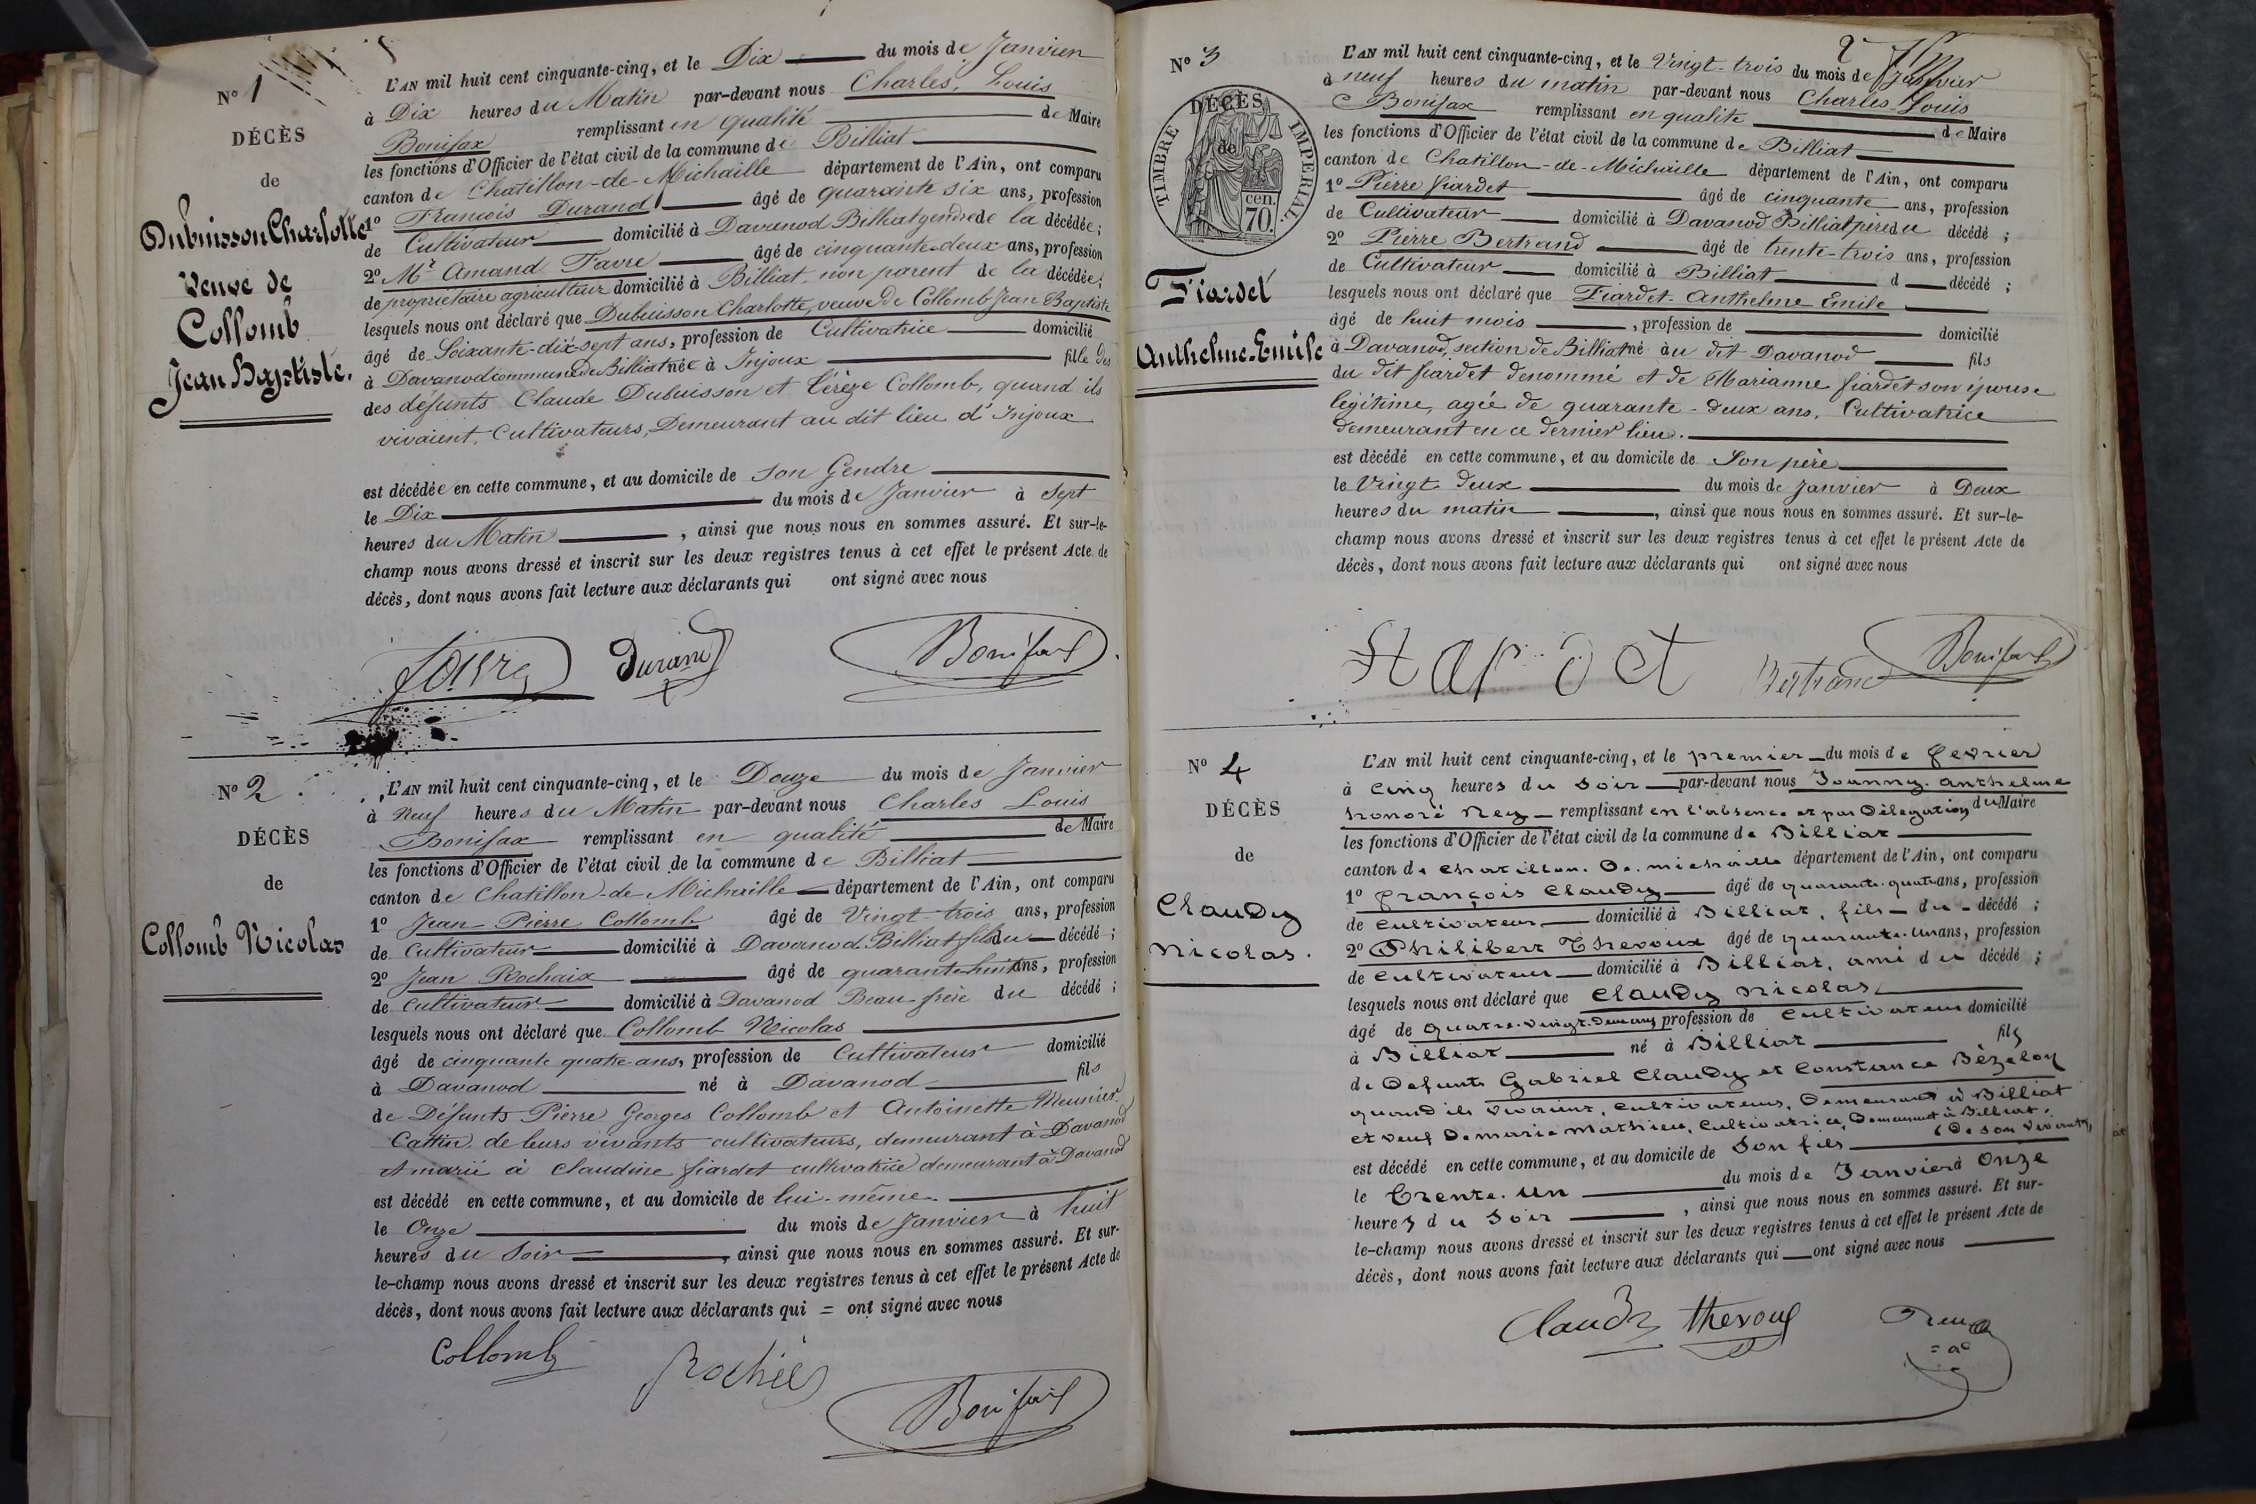 N° 1
DÉCÈS
de
Dubuisson Charlotte
Veuve de
Collomb
Jean Baptiste.
L'AN mil huit cent cinquante-cinq, et le Dix du mois de Janvier
à Dix heures du Matin par-devant nous Charles, Louis
Bonifax remplissant en qualité de Maire
les fonctions d'Officier de l'état civil de la commune de Billiat
canton de Chatillon-de-Michaille département de l'Ain, ont comparu
1° François Durand âgé de quarante six ans, profession
de Cultivateur domicilié à Davanod Billiat gendre de la décédée;
2° Mr Amand Favre âgé de cinquante-deux ans, profession
de propriétaire agriculteur domicilié à Billiat, non parent de la décédée;
lesquels nous ont déclaré que Dubuisson Charlotte, veuve de Collomb Jean Baptiste
âgé de Soixante-dix-sept ans, profession de Cultivatrice domicilié
à Davanod commune de Billiat née à Injoux fille des
des défunts Claude Dubuisson et Térèze Collomb, quand ils
vivaient, Cultivateurs, Demeurant au dit lieu d'Injoux
est décédée en cette commune, et au domicile de son Gendre
le Dix du mois de Janvier à Sept
heures du Matin, ainsi que nous nous en sommes assuré. Et sur-le-
champ nous avons dressé et inscrit sur les deux registres tenus à cet effet le présent Acte de
décès, dont nous avons fait lecture aux déclarants qui ont signé avec nous
favre Durand Bonifax
N° 2
DÉCÈS
de
Collomb Nicolas
L'AN mil huit cent cinquante-cinq, et le Douze du mois de Janvier
à Neuf heures du Matin par-devant nous Charles Louis
Bonifax remplissant en qualité de Maire
les fonctions d'Officier de l'état civil de la commune de Billiat
canton de Chatillon-de-Michaille département de l'Ain, ont comparu
1° Jean Pierre Collomb âgé de Vingt-trois ans, profession
de Cultivateur domicilié à Davanod Billiat fils du décédé;
2° Jean Rochaix âgé de quarante-huit ans, profession
de Cultivateur domicilié à Davanod Beau frère du décédé;
lesquels nous ont déclaré que Collomb Nicolas
âgé de cinquante quatre ans, profession de Cultivateur domicilié
à Davanod né à Davanod fils
de Défunts Pierre Georges Collomb et Antoinette Meunier
Cattin de leurs vivants cultivateurs, demeurant à Davanod
et marié à Claudine fiardet cultivatrice demeurant à Davanod
est décédé en cette commune, et au domicile de lui-même
le Onze du mois de Janvier à huit
heures du Soir, ainsi que nous nous en sommes assuré. Et sur-
le-champ nous avons dressé et inscrit sur les deux registres tenus à cet effet le présent Acte de
décès, dont nous avons fait lecture aux déclarants qui = ont signé avec nous
Collomb
Bonifax
2
N° 3
TIMBRE IMPERIAL.
DÉCÈS
de
70 cen.
Fiardet
Anthelme-Emile
L'AN mil huit cent cinquante-cinq, et le Vingt-trois du mois de Janvier
à neuf heures du matin par-devant nous Charles-Louis
Bonifax remplissant en qualité de Maire
les fonctions d'Officier de l'état civil de la commune de Billiat
canton de Chatillon-de-Michaille département de l'Ain, ont comparu
1° Pierre fiardet âgé de cinquante ans, profession
de Cultivateur domicilié à Davanod Billiat père du décédé;
2° Pierre Bertrand âgé de trente-trois ans, profession
de Cultivateur domicilié à Billiat d décédé;
lesquels nous ont déclaré que Fiardet Anthelme Emile
âgé de huit mois, profession de domicilié
à Davanod, section de Billiat né au dit Davanod fils
du dit fiardet dénommé et de Marianne fiardet son épouse
légitime, agée de quarante-deux ans, Cultivatrice
demeurant en ce dernier lieu.
est décédé en cette commune, et au domicile de Son père
le Vingt deux du mois de Janvier à Deux
heures du matin, ainsi que nous nous en sommes assuré. Et sur-le-
champ nous avons dressé et inscrit sur les deux registres tenus à cet effet le présent Acte de
décès, dont nous avons fait lecture aux déclarants qui ont signé avec nous
fiardet Bertrand Bonifax
N° 4
DÉCÈS
de
Claudy
Nicolas.
L'AN mil huit cent cinquante-cinq, et le premier du mois de fevrier
à cinq heures du Soir par-devant nous Joanny-anthelme
honoré Rey remplissant en l'absence et par Délégation du Maire
les fonctions d'Officier de l'état civil de la commune de Billiat
canton de Chatillon. De. michaille département de l'Ain, ont comparu
1° françois Claudy âgé de quarante-quatre ans, profession
de cultivateur domicilié à Billiat, fils du décédé;
2° Philibert Thevoux âgé de quarante-un ans, profession
de cultivateur domicilié à Billiat, ami du décédé;
lesquels nous ont déclaré que Claudy Nicolas
âgé de quatre-vingt-deux ans profession de Cultivateur domicilié
à Billiat né à Billiat fils
de Defunts Gabriel Claudy et Constance Bèzelon
quand ils vivaient, cultivateurs, Demeurant à Billiat
et veuf De marie Mathieu, Cultivatrice, Demeurant à Billiat,
(De son vivant,
est décédé en cette commune, et au domicile de Son fils
le Trente-un du mois de Janvier à Onze
heures du Soir, ainsi que nous nous en sommes assuré. Et sur-
le-champ nous avons dressé et inscrit sur les deux registres tenus à cet effet le présent Acte de
décès, dont nous avons fait lecture aux déclarants qui ont signé avec nous
Claudy thevoux